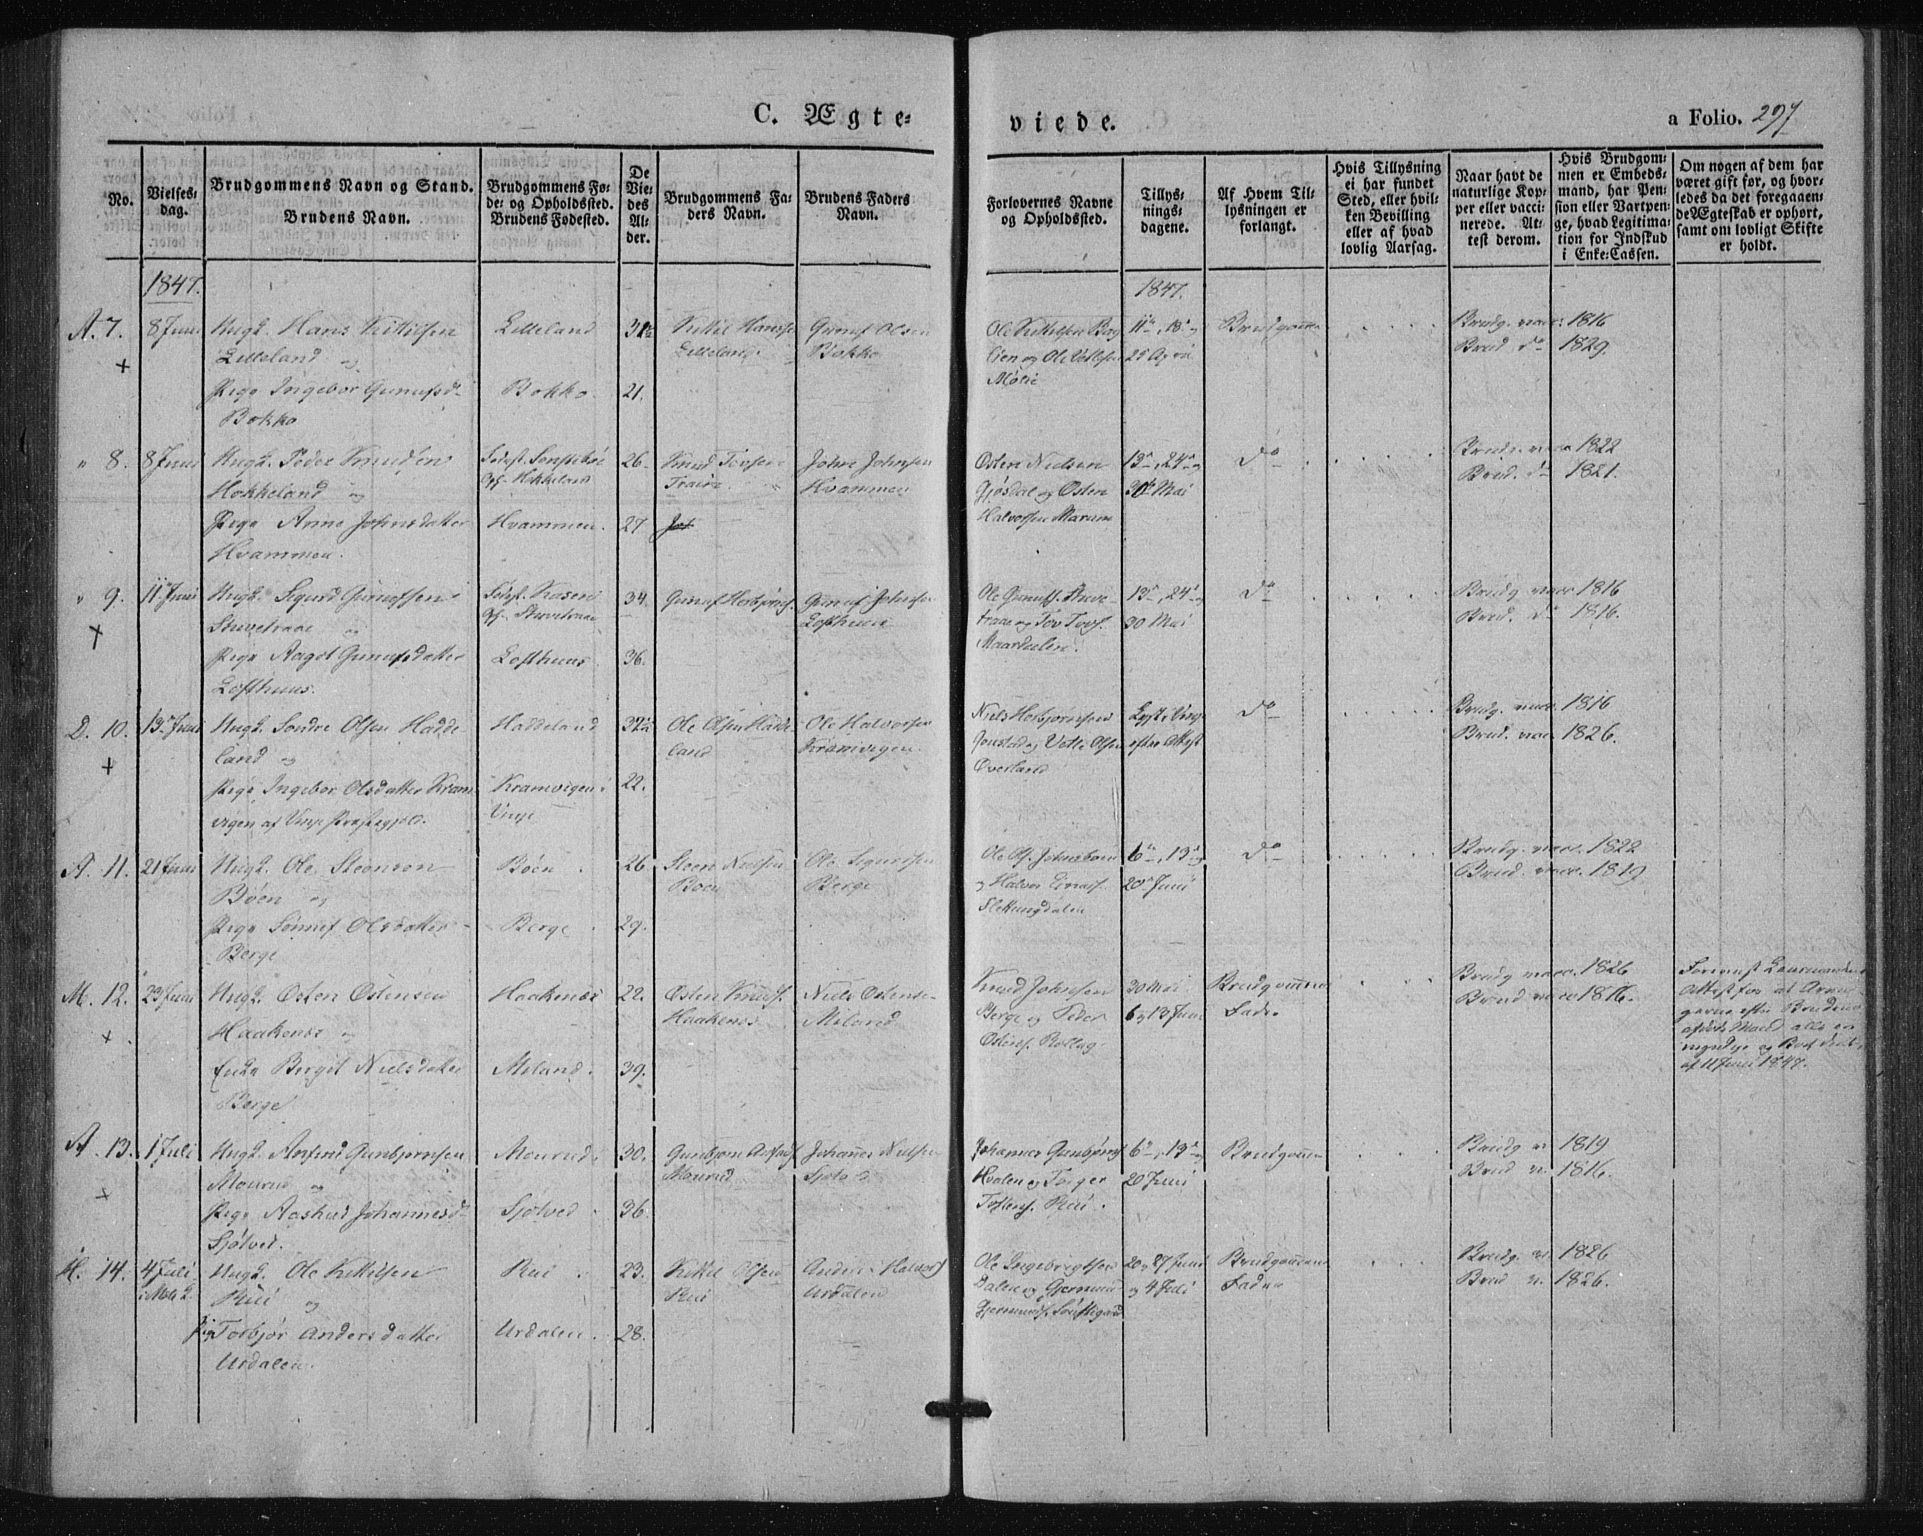 C. Ægte-
viede.
a Folio. 297
No.
Vielses-
dag.
Brudgommens Navn og Stand.
Brudens Navn.
Brudgommens Fø-
de- og Opholdssted.
Brudens Fødested.
De
Vie-
des
Al-
der.
Brudgommens Fa-
ders Navn.
Brudens Faders
Navn.
Forlovernes Navne
og Opholdssted.
Tillys-
nings-
dagene.
Af Hvem Til-
lysningen er
forlangt.
Hvis Tillysning
ei har fundet
Sted, eller hvil-
ken Bevilling
eller af hvad
lovlig Aarsag.
Naar havt de
naturlige Kop-
per eller vacci-
nerede. At-
test derom.
Hvis Brudgom-
men er Embeds-
mand, har Pen-
sion eller Vartpen-
ge, hvad Legitima-
tion for Indskud
i Enke-Cassen.
Om nogen af dem har
været gift før, og hvor-
ledes da det foregaaen-
de Ægteskab er ophørt,
samt om lovligt Skifte
er holdt.
1847.
1847.
A. 7.
8 Juni
Ungk. Hans Kittilsen
Lilleland og
Pige Ingebor Gunufsd.
Bokko
Lilleland
Bokko.
21.
Kittil Hansse
Lilleland
Gunuf Olsen
Bokko
Ole Kittilsen
lien og Ole
11te, 18de og
25 April
Brudgommen
Brudg. vacc. 1816
Brud do 1829.
" 8.
8 Juni
Ungk. Peder Knudsen
Hokkeland og
Pige Anne Johnsdatter
Hvammen.
Hvammen.
26.
27
Knud Torsen
John Johnsen
Hvammen
Østen Nielsen
Gjøsdal og Østen
Halvorsen Marum
13de, 24de og
30te Mai
Do
Brudg. vacc 1822
Brud. do 1821.
" 9.
11 Juni
Ungk. Sigurd Gunufsen
og
Pige Aagot Gunufsdatter
Lofthuus.
Lofthuus
34.
36.
Gunuf Herbjørns.
Gunuf Johnsen
Lofthuus
Ole Gunufs.
13de, 24de og
30 Mai
Do
Brudg vacc 1816
Brud. do 1816.
D. 10.
13 Juni
Ungk. Sondre Olsen Hadde
land og
Pige Ingebor Olsdatter Kram
vigen af Vinje Præstegjeld.
Haddeland
Kramvigen i
Vinje
22.
Ole Olsen Hadde
land
Ole Halvorsen
Kramvigen
Niels Herbjørnsen
og Vetle Olsen
Overland
Lyst i Vinje
efter Attest
Do
Brudg. vacc. 1816
Brud. vacc. 1826.
A. 11.
21 Juni
Ungk. Ole Steenson
Bøen og
Pige Sønnef Olsdatter
Berge
Bøen
Berge
26
29.
Steen Nielsen
Bøen
Ole Sigurdsen
Berge
og Halvor
6te, 13de og
20de Juni
Do
Brudg. vacc. 1822
Brud. vacc. 1819
M. 12.
23 Juni
Ungk. Østen Østensen
Haakenes og
Enke Bergit Nielsdatter
Berge
Haakenes
Meland.
22.
39.
Østen Knuds.
Haakenes
Niels Østense
Meland
Knud Johnsen
Berge og Peder
Østens. Rollag
30 Mai
6 og 13 Juni
Brudgommens
Fader
Brudg vacc. 1826
Brud vacc 1816.
Forevist
Attest for at
efter Brudens
Mand
af 11 Juni 1847.
A. 13.
1 Juli
Ungk. Anfind Gunbjørnsen
Mourud og
Pige Aashild Johannesd.
Sjølved.
Mourud.
Sjølved
30.
36.
Gunbjørn
Mourud
Johannes Nielsen
Johannes Gunbjørns
Hvalen og Torger
Toftens. Rui.
6te, 13de og
20 Juni
Brudgommen
Brudg v. 1819
Brud v. 1816.
H. 14.
4 Juli
Ungk. Ole Kittilsen
Rui og
Pige Torbjør Andersdatter
Urdalen.
Rui
Urdalen.
23.
28.
Kittil Olsen
Rui
Anders Halvors
Urdalen
Ole Ingebrigtsen
Dalen og Gjermund
Gjermunds.
20, 27 Juni
og 4 Juli
Brudgommens
Fader
Brudg. v. 1826
Brud v. 1826.